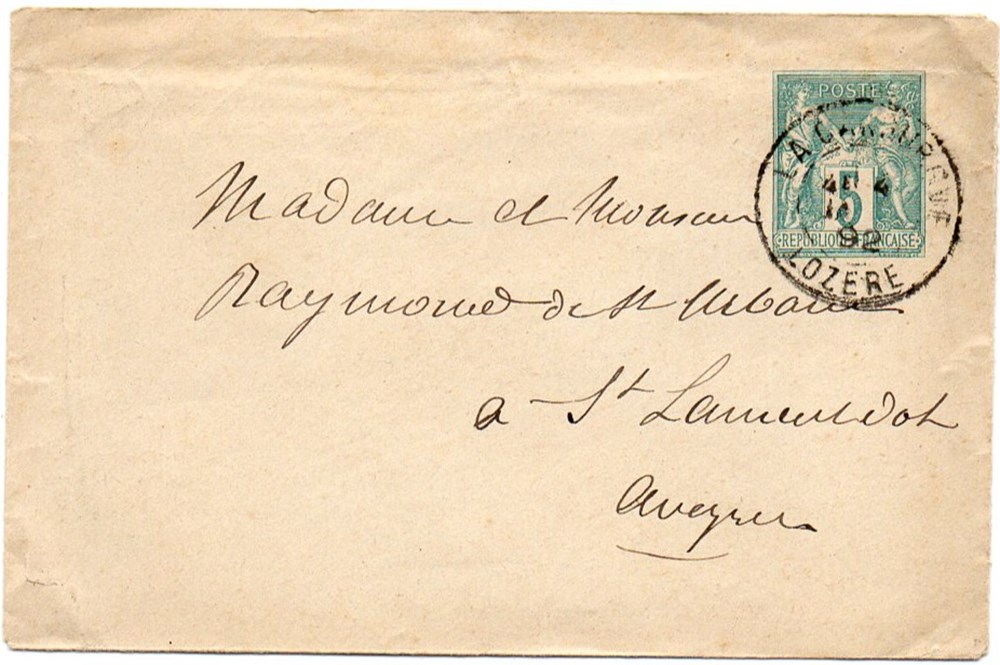 POSTES
5
REPUBLIQUE FRANÇAISE
LA CANOURGUE
4E 4
92
LOZÈRE
Madame et Monsieur
Raymond de St Urbain
a St Laurent d'olt
Aveyron